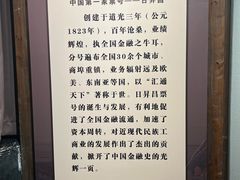 中国第一家票号——日昇昌
创建于道光三年（公元
1823年），百年沧桑，业绩
辉煌，执全国金融之牛耳，
分号遍布全国30余个城市、
商埠重镇，业务辐射远及欧
美、东南亚等国，以“汇通
天下”著称于世。日昇昌票
号的诞生与发展，有利地促
进了全国金融流通，加速了
资本周转，对近现代民族工
商业的发展作出了杰出的贡
献，掀开了中国金融史的光
辉一页。